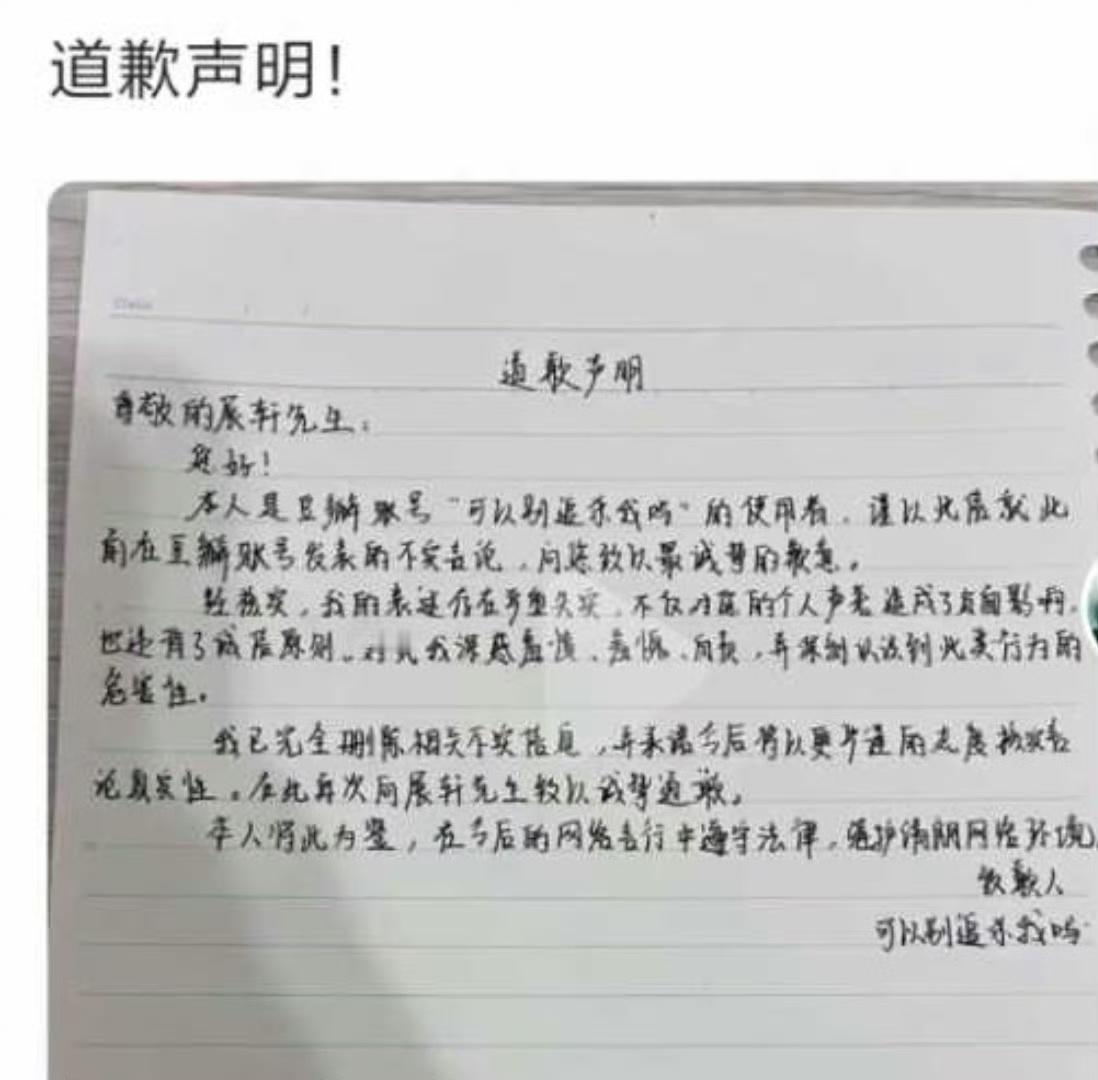 道歉声明!
道歉声明
尊敬的展轩先生:
您好!
本人是豆瓣账号“可以别追杀我吗”的使用者,谨以此信就此
前在豆瓣账号发表的不实言论,向您致以最诚挚的歉意。
经核实,我的表述存在严重失实,不仅对您的个人声誉造成了负面影响,
也违背了诚信原则。对此我深感羞愧、懊悔、自责,并深刻认识到此类行为的
危害性。
我已完全删除相关不实信息,并承诺今后将以更严谨的态度核实言
论真实性。在此再次向展轩先生致以诚挚道歉。
本人将此为鉴,在今后的网络言行中遵守法律,维护清朗网络环境
致歉人
可以别追杀我吗